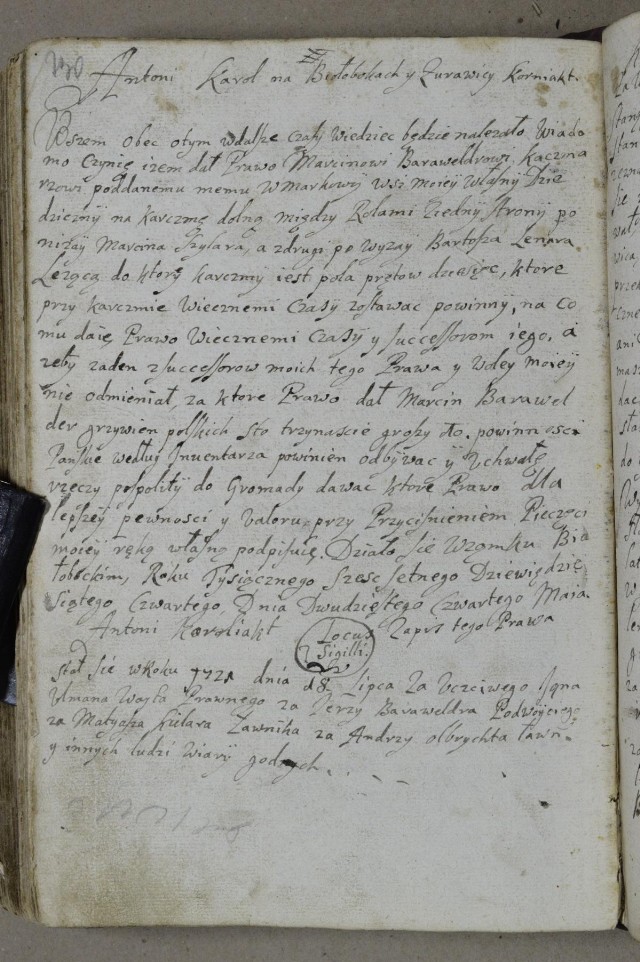 130
Antoni Karol na Białobokach y Zurawicy Korniakt.
Wszem obec otym wdalsze czasy wiedziec będzie nalezało Wiado
mo Czynię izem dał Prawo Marcinowi Baraweldrowi, Kaczma
rzowi poddanemu memu w Markowy wsi moiey własny Dzie
dziczny na karczmę dolną między Rolami ziedny strony po
niżay Marcina Szylara, a zdrugi po wyzay Bartosza Lenara
Lezącą do ktory karczmy iest pola prętow dziesięc, ktore
przy karczmie wiecznemi czasy zostawac powinny, na co
mu daię Prawo wiecznemi czasy y successorom iego, a
zeby zaden zsuccessorow moich tego Prawa y woley moiey
nie odmieniał, za ktore Prawo dał Marcin Barawel
der grzywien polskich sto trzynascie groszy do. powinnosci
Panskie według Inwentarza powinien odbywac y Uchwałę
rzeczy pospolity do Gromady dawac ktore Prawo dla
lepszey pewnosci y valoru przy Przycisnieniem Pieczęci
moiey ręką własną podpisuię. Działo sie w zamku Bia
łobockim, Roku Tysiącznego szesc setnego Dziewiędzie
siątego Czwartego, Dnia Dwudziestego Czwartego Maia.
Antoni Korniakt Locus Sigilli. Zapis tego Prawa
stał sie w Roku 1721 dnia d 8 Lipca Za Uczciwego Igna
Ulmana Woyta Prawnego za Jerzy Baraweldra Podwoyciego
za Matyasza Kielara Ławnika za Andrzy olbrychta ławn
y innych ludzi wiary godnych.